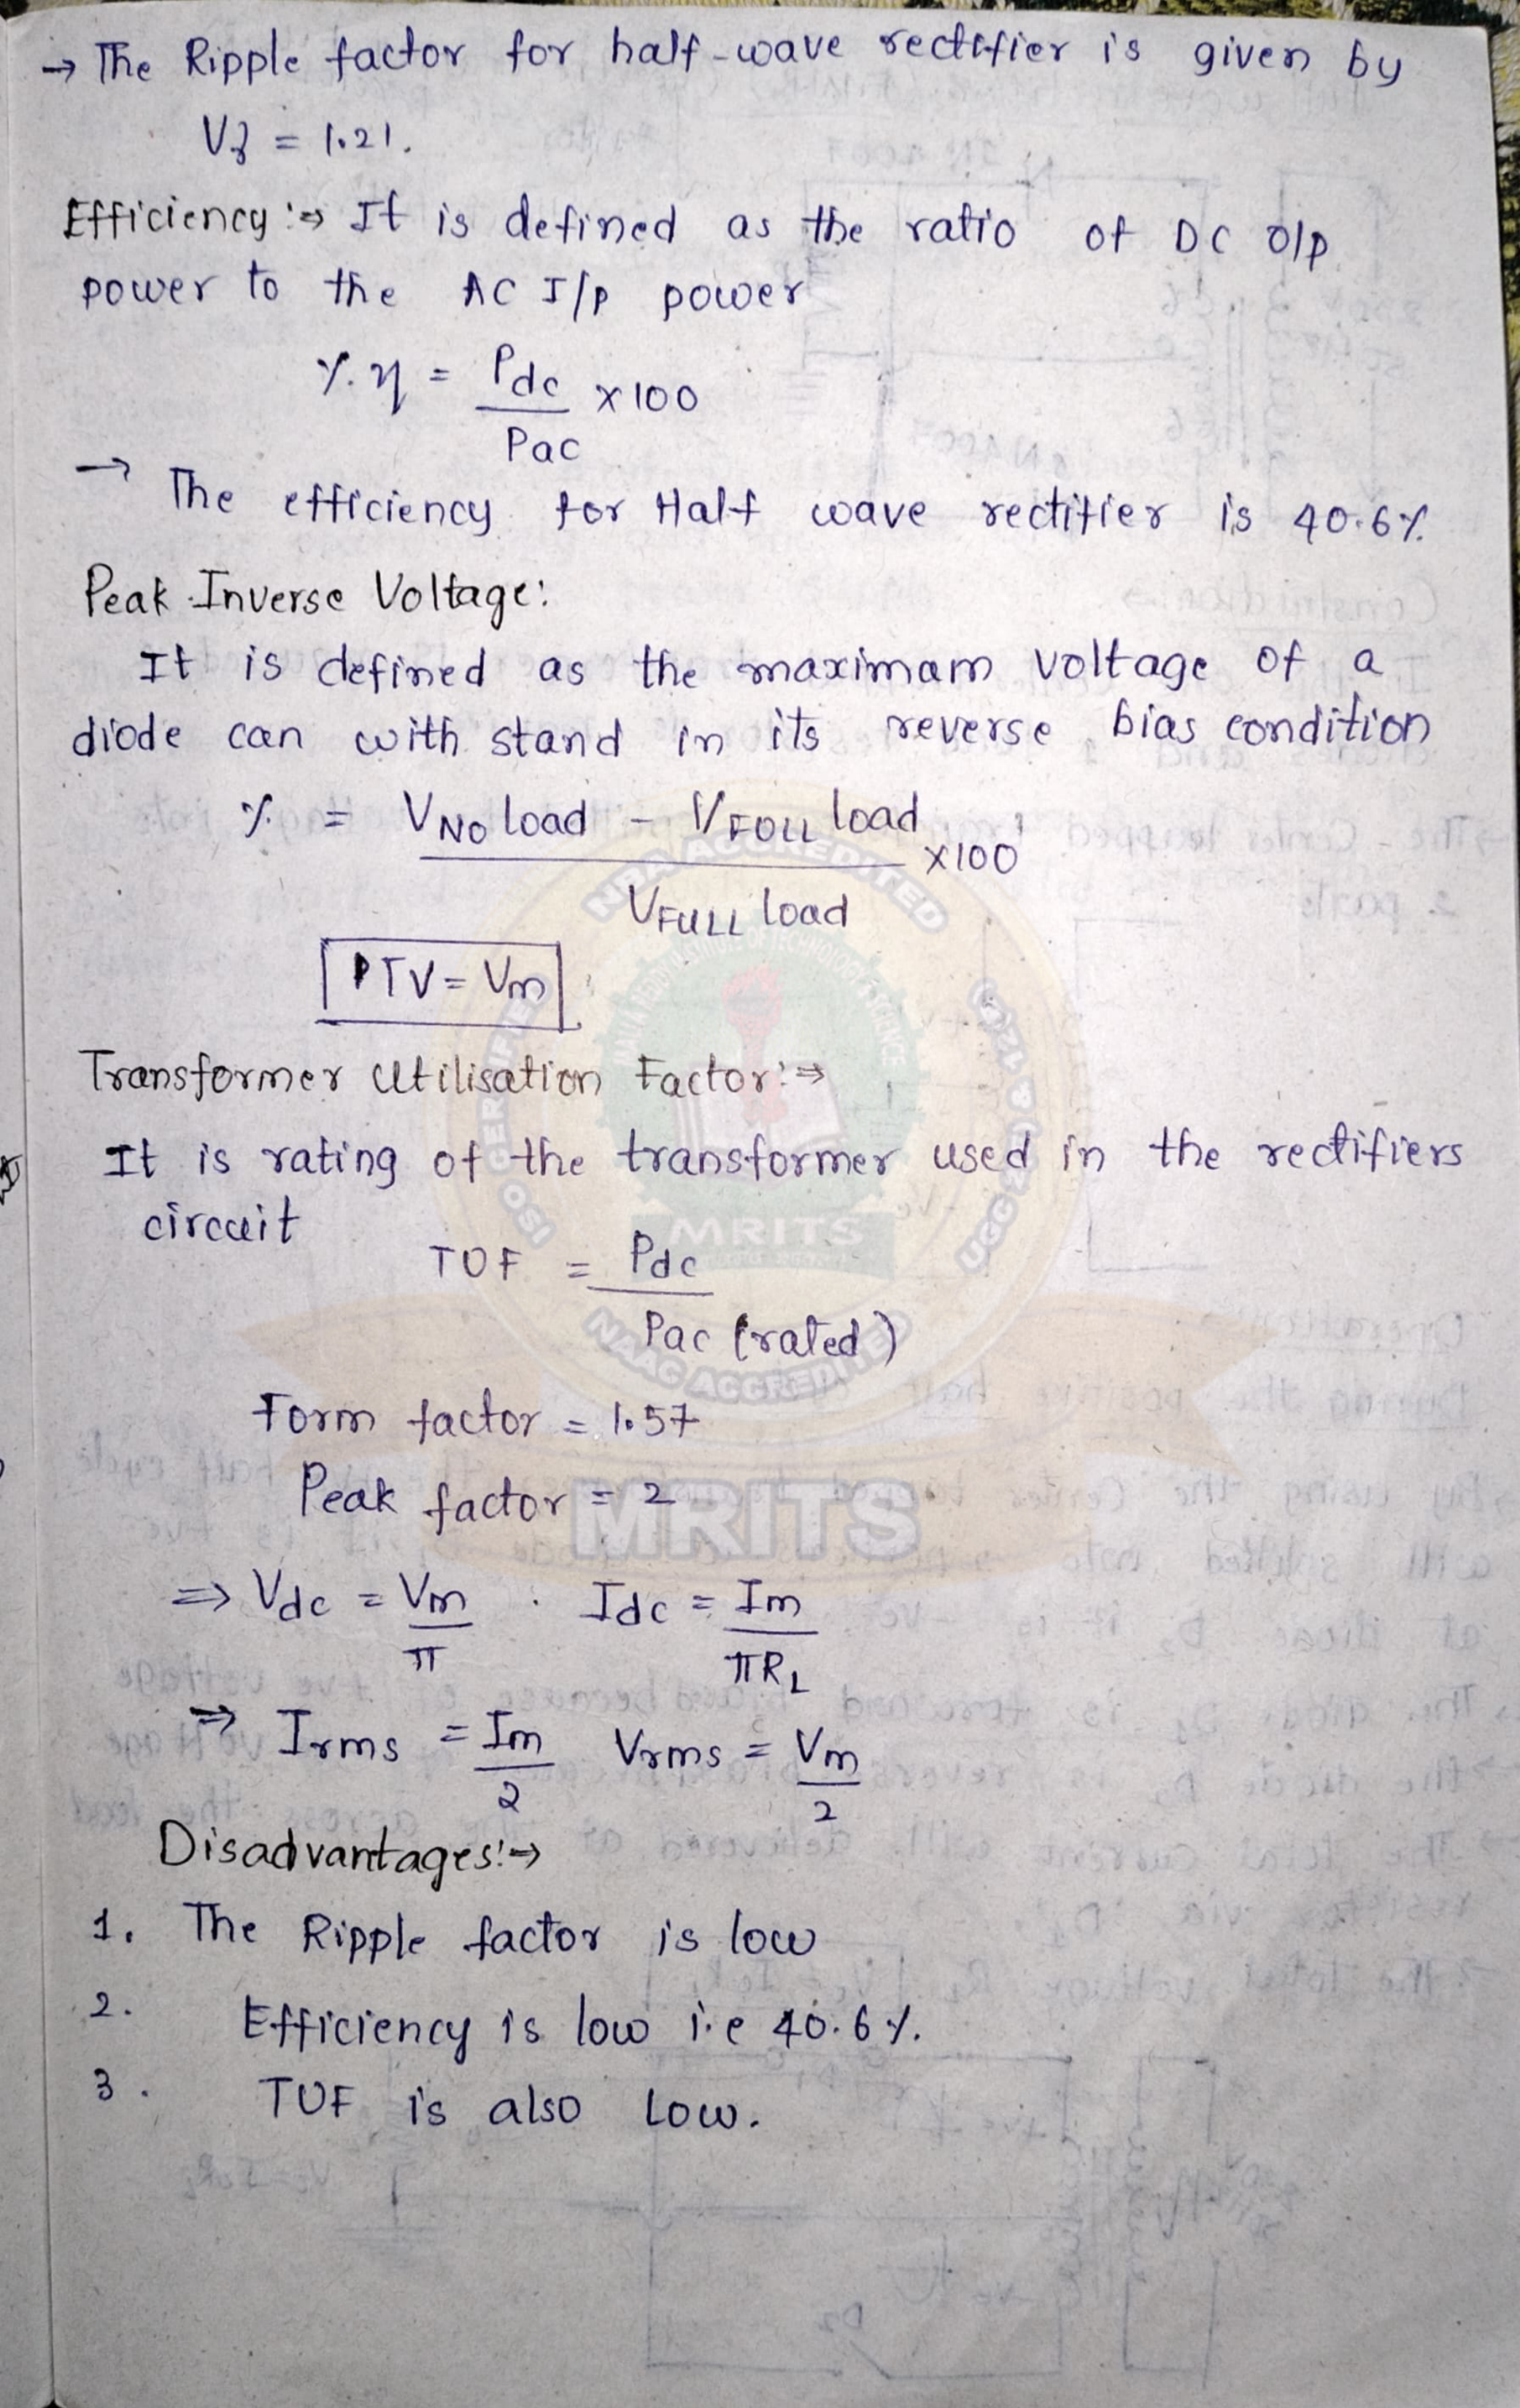 → The Ripple factor for half-wave rectifier is given by
Vγ = 1.21.
Efficiency :⇒ It is defined as the ratio of DC o/p
power to the AC I/p power
%η = Pdc / Pac ×100
→ The efficiency for Half wave rectifier is 40.6%
Peak Inverse Voltage:
It is defined as the maximam voltage of a
diode can with stand in its reverse bias condition
% = VNO load - VFULL load / VFULL load ×100
PIV = Vm
Transformer Utilisation Factor:⇒
It is rating of the transformer used in the rectifiers
circuit
TUF = Pdc / Pac (rated)
Form factor = 1.57
Peak factor = 2
⇒ Vdc = Vm / π . Idc = Im / πRL
⇒ Irms = Im / 2 Vrms = Vm / 2
Disadvantages:→
1. The Ripple factor is low
2. Efficiency is low i.e 40.6%.
3. TUF is also Low.
NBA ACCREDITED
MRITS
NAAC ACCREDITED
MRITS